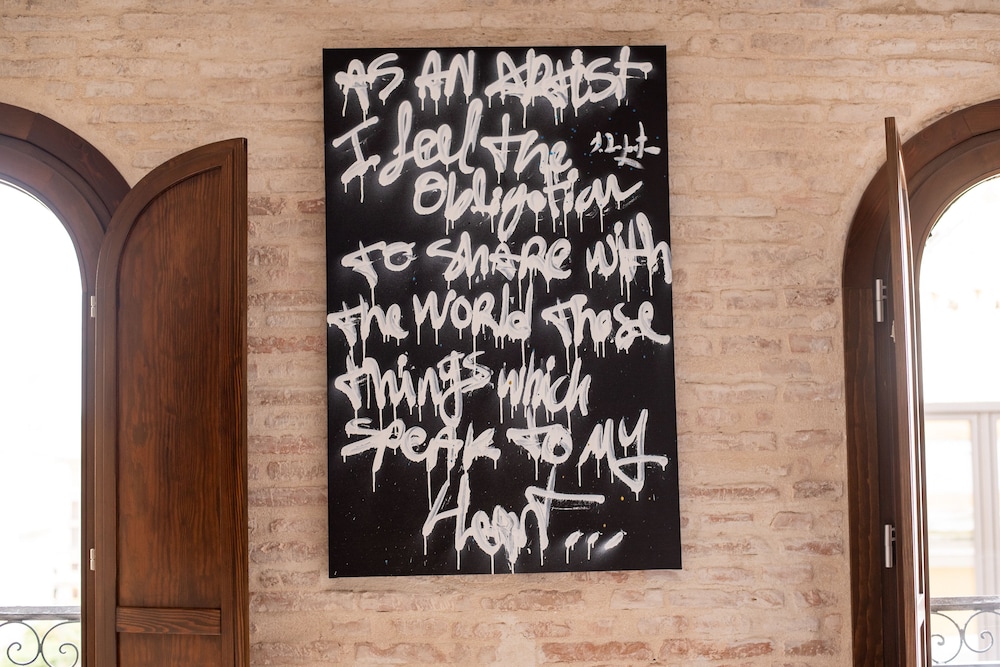 AS AN ARtist
I feel the
Obligation
to SHARE with
the WORLD Those
things which
SPEAK to MY
Heart...